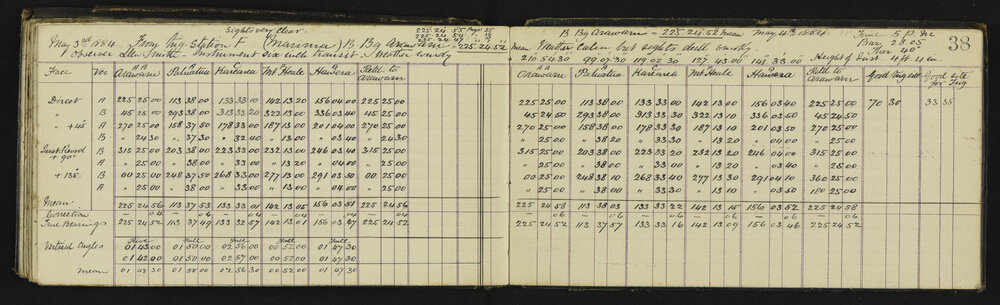 Sights very clear.
225 24 55
225 24 54
225 24 47
May 3rd 1884 From Trig. Station F (Manuma) B Bg Arawaru = 225.24.52
Observer Instrument Six inch transit. Weather windy
Face Ver Arawaru Pukuatua Kareārea Mt Heale Hawera Retd. to Arawaru
Direct A 225 25 00 113 38 00 133 33 00 142 13 20 156 04 00 225 25 00
" B 45 25 00 293 38 00 313 33 20 322 13 00 336 03 40 225 25 00
" + 45° A 270 25 00 158 37 50 178 33 00 187 13 00 201 04 00 270 25 00
B " 24 30 " 37 30 " 32 40 " 13 00 " 03 40 " 24 30
Inst. Revsd + 90° B 315 25 00 203 38 00 223 33 00 232 13 00 246 03 40 315 25 00
A " 25 00 " 38 00 " 33 00 " 13 20 " 04 00 " 25 00
" + 135° B 00 25 00 248 37 50 268 33 00 277 13 00 291 03 50 00 25 00
A " 25 00 " 38 00 " 33 00 " 13 00 " 04 00 " 25 00
Mean 225 24 56 113 37 53 133 33 01 142 13 05 156 03 51 225 24 56
Correction — 04 — 04 — 04 — 04 — 04 — 04
True Bearings 225 24 52 113 37 49 133 32 57 142 13 01 156 03 47 225 24 52
Vertical Angles
01 43 00 01 50 00 02 56 00 00 52 00 01 47 30
01 42 00 01 50 00 02 57 00 00 52 00 01 47 30
mean 01 42 30 01 50 00 02 56 30 00 52 00 01 47 30
38
B Bg Arawaru = 225 24 52 mean May 4th 1884
Time 5 P.M.
Bar 28.05
Ther 40°
mean Weather Calm, but sights dull smoky
Height of Inst 4 ft 4 in.
210.54.30 99.07.30 119.02.30 127.43.00 141.33.00
Arawaru Pukuatua Kareārea Mt Heale Hawera Retd. to Arawaru Good Trig site Good site for Trig
225 25 00 113 38 00 133 33 00 142 13 00 156 03 40 225 25 00 70 30 33 35
45 24 50 293 38 00 313 33 30 322 13 10 336 03 50 45 24 50
270 25 00 158 38 00 178 33 30 187 13 10 201 03 50 270 25 00
" 25 00 " 38 20 " 33 30 " 13 20 " 04 00 " 25 00
315 25 00 203 38 00 223 33 20 232 13 20 246 04 00 315 25 00
" 25 00 " 38 00 " 33 40 " 13 20 " 03 40 " 25 00
00 25 00 248 38 10 268 33 40 277 13 30 291 04 10 360 25 00
" 25 00 " 38 00 " 33 30 " 13 10 " 03 50 180 25 00
225 24 58 113 38 03 133 33 22 142 13 15 156 03 52 225 24 58
— 06 — 06 — 06 — 06 — 06 — 06
225 24 52 113 37 57 133 33 16 142 13 09 156 03 46 225 24 52